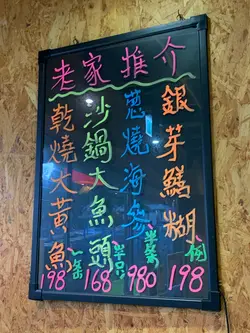 老家推介
銀芽鱔糊 例 198
蔥燒海參 半斤 980
沙鍋大魚頭 半只 168
乾燒大黃魚 一条 198